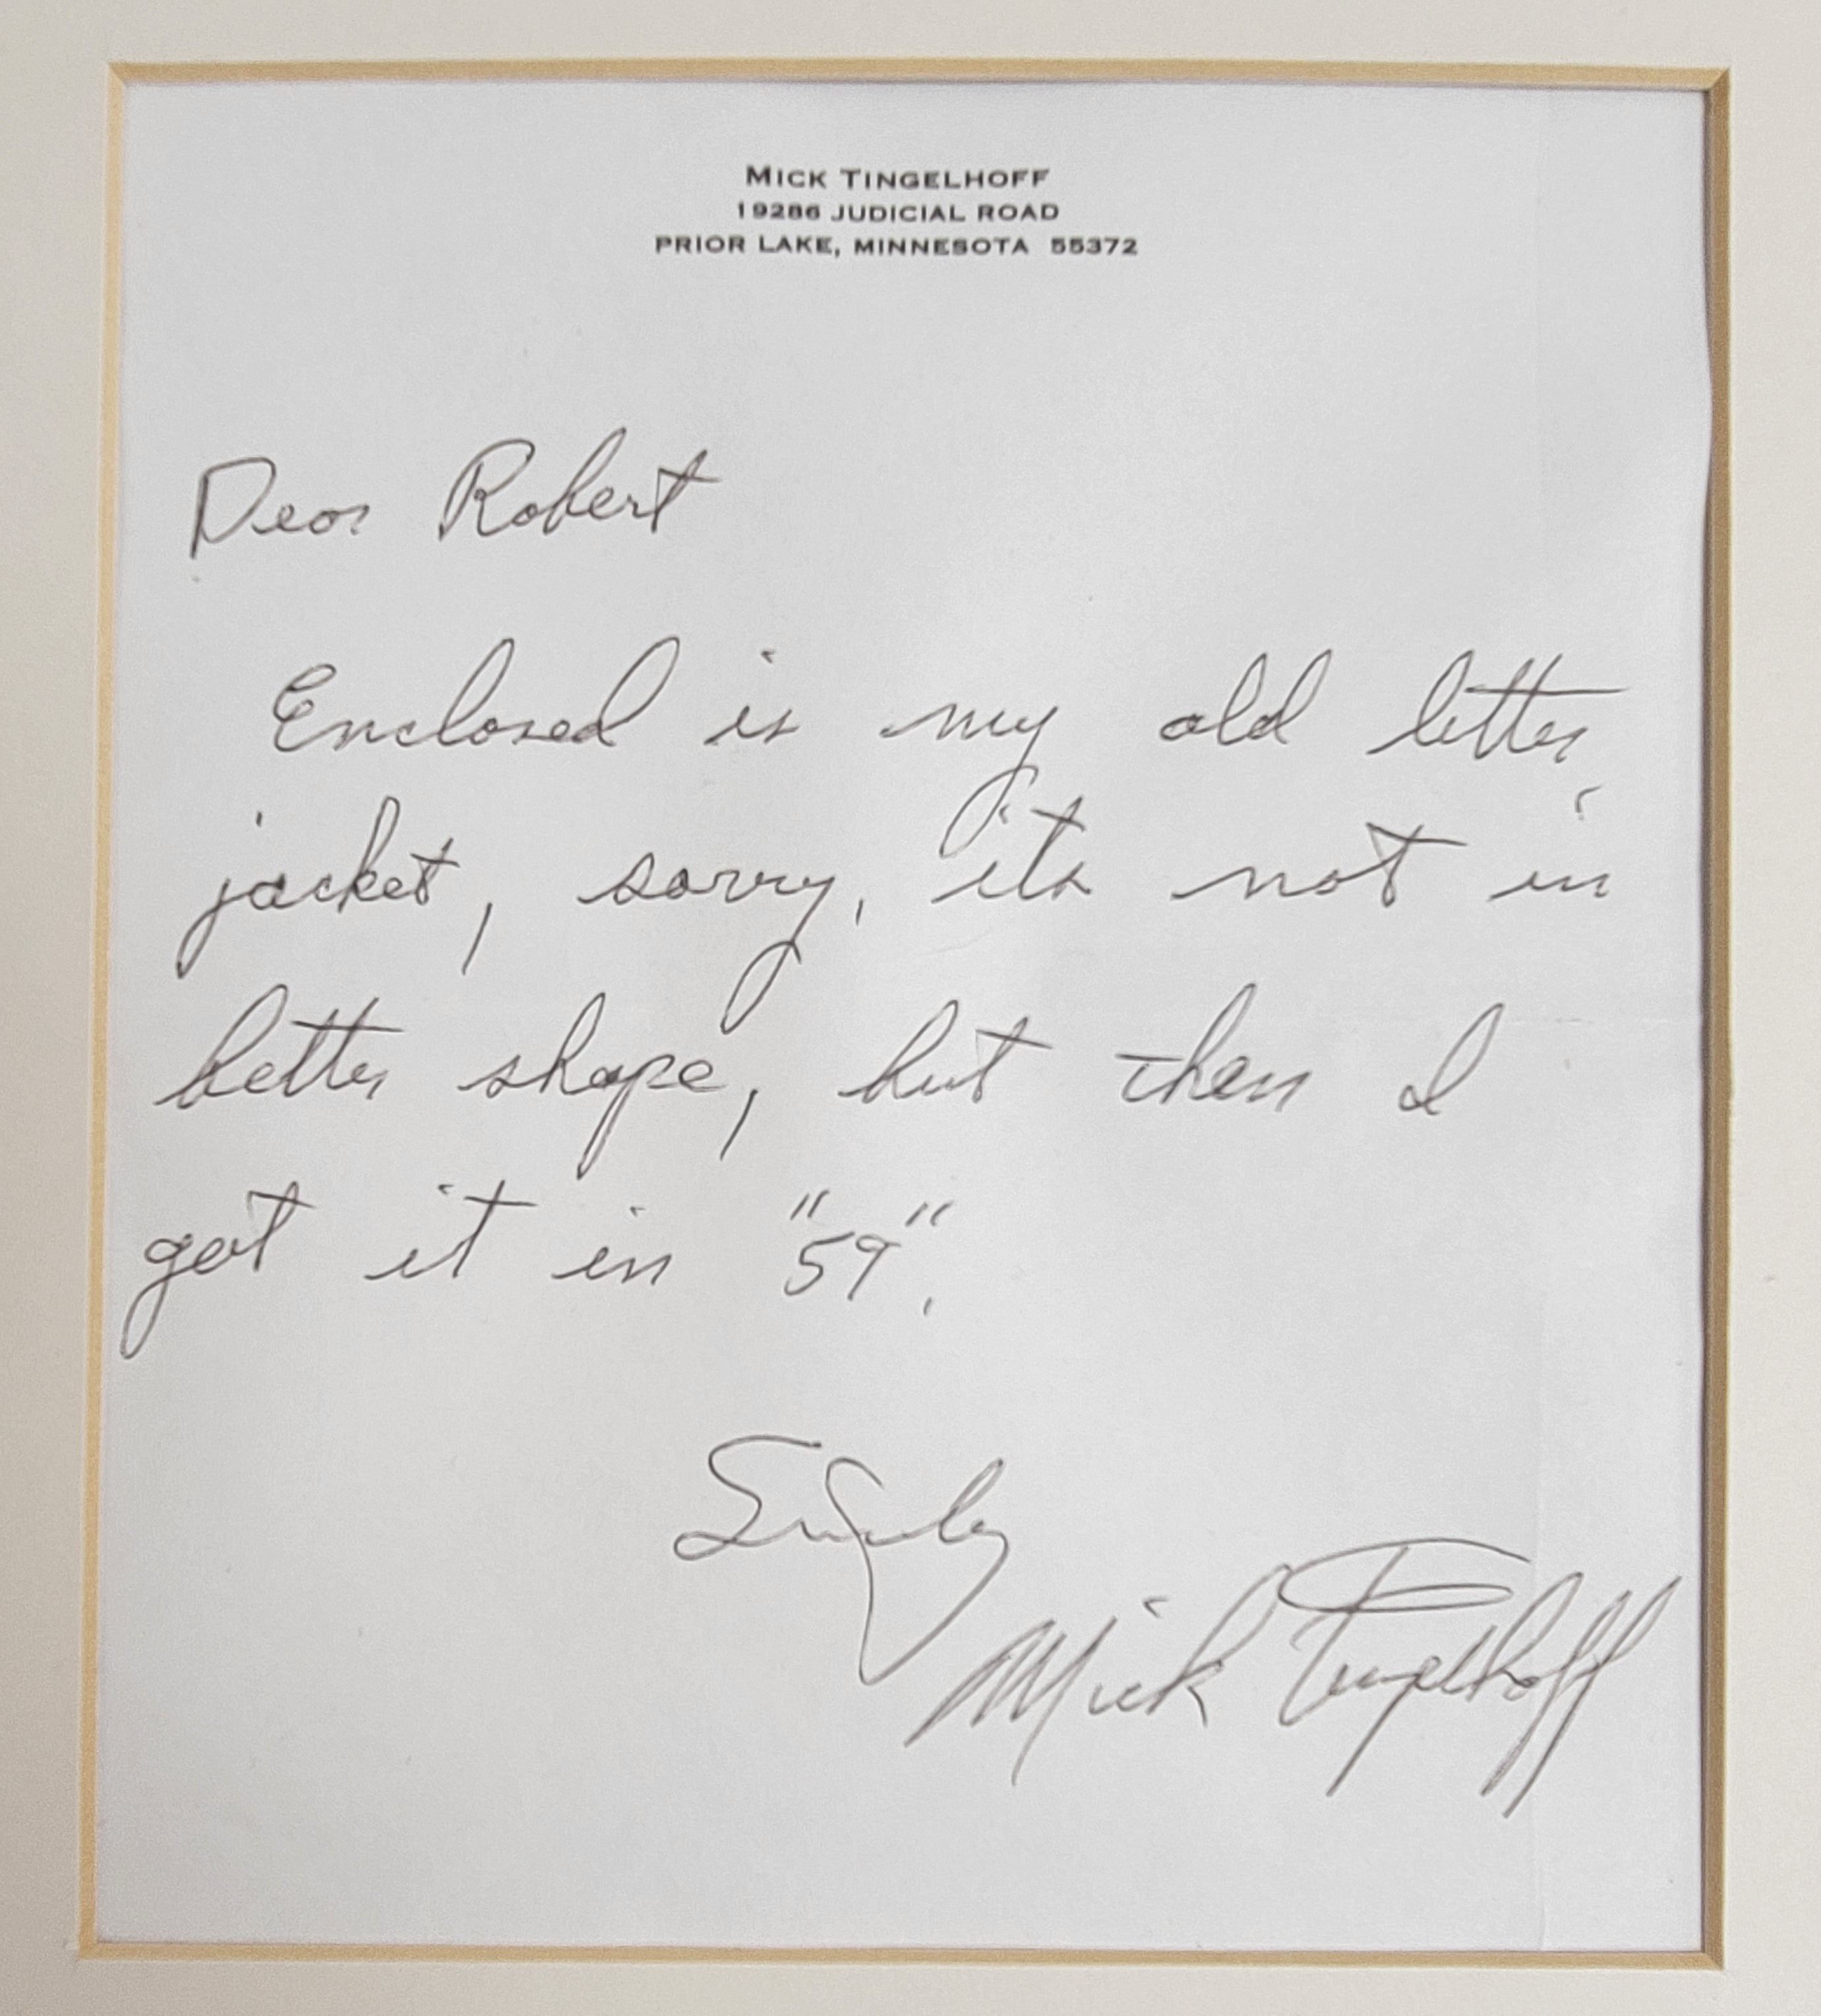 MICK TINGELHOFF
19286 JUDICIAL ROAD
PRIOR LAKE, MINNESOTA 55372
Dear Robert
Enclosed is my old letter
jacket, sorry, its not in
better shape, but then I
got it in "59".
Sincerely
Mick Tingelhoff